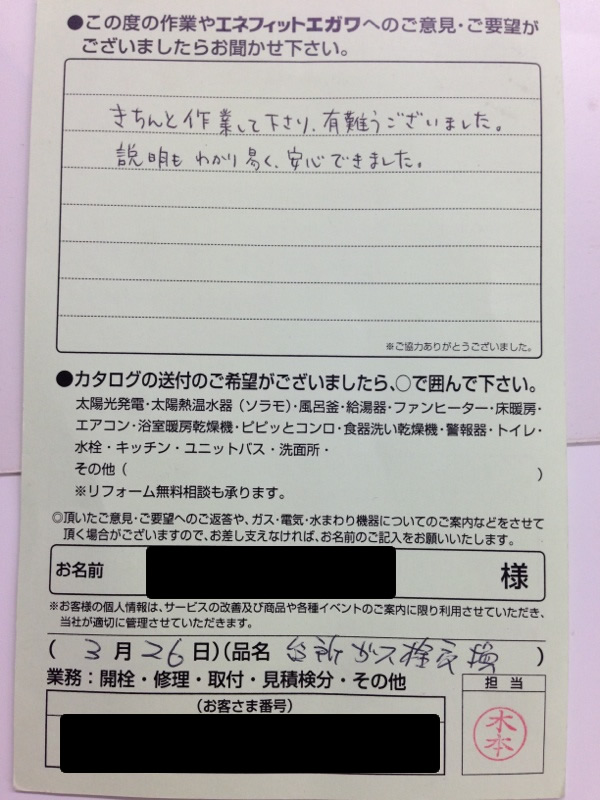 ●この度の作業やエネフィットエガワへのご意見・ご要望が
ございましたらお聞かせ下さい。
きちんと作業して下さり、有難うございました。
説明もわかり易く、安心できました。
※ご協力ありがとうございました。
●カタログの送付のご希望がございましたら、○で囲んで下さい。
太陽光発電・太陽熱温水器（ソラモ）・風呂釜・給湯器・ファンヒーター・床暖房・
エアコン・浴室暖房乾燥機・ピピッとコンロ・食器洗い乾燥機・警報器・トイレ・
水栓・キッチン・ユニットバス・洗面所・
その他（ ）
※リフォーム無料相談も承ります。
◎頂いたご意見・ご要望へのご返答や、ガス・電気・水まわり機器についてのご案内などをさせて
頂く場合がございますので、お差し支えなければ、お名前のご記入をお願いいたします。
お名前 様
※お客様の個人情報は、サービスの改善及び商品や各種イベントのご案内に限り利用させていただき、
当社が適切に管理させていただきます。
（ 3月26日）（品名 台所ガス栓交換 ）
業務：開栓・修理・取付・見積検分・その他
担当
（お客さま番号）
水本